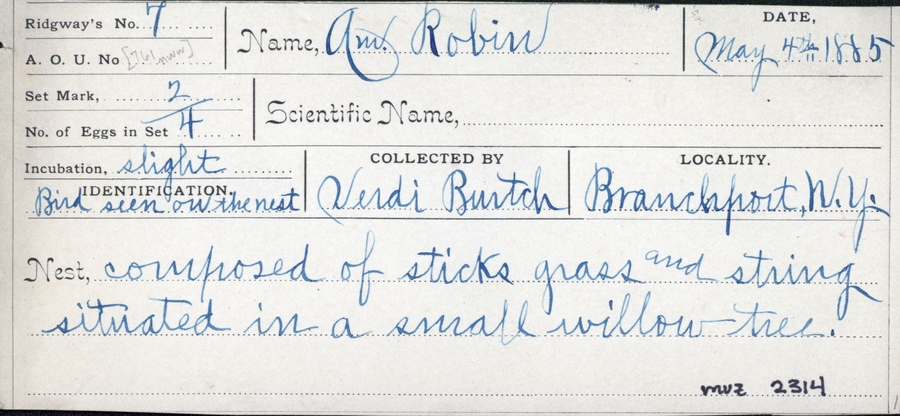 Ridgway's No. 7
A. O. U. No [761 mvz]
Name, Am. Robin
DATE,
May 4th 1885
Set Mark, 2
No. of Eggs in Set 4
Scientific Name,
Incubation, slight
IDENTIFICATION.
Bird seen on the nest
COLLECTED BY
Verdi Burtch
LOCALITY.
Branchport, N.Y.
Nest, composed of sticks grass and string
situated in a small willow tree.
mvz 2314